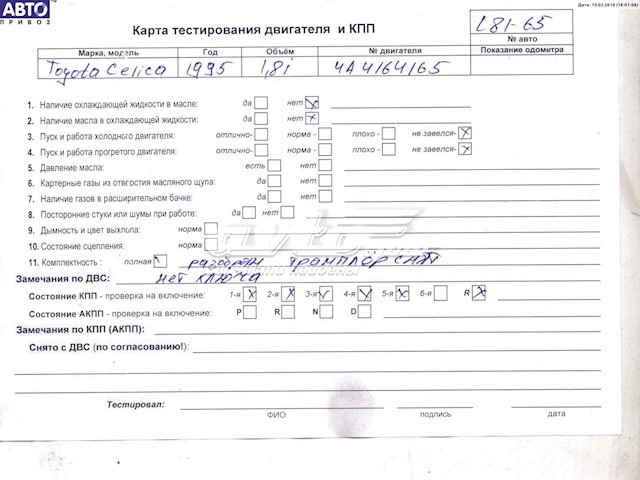 АВТО
ПРИВОЗ
Дата: 15.03.2019 (16:01:08)
Карта тестирования двигателя и КПП
L81-65
№ авто
Марка, модель Год Объём № двигателя Показание одометра
Toyota Celica 1995 1,8i 4A4164165
1. Наличие охлаждающей жидкости в масле: да нет x
2. Наличие масла в охлаждающей жидкости: да нет x
3. Пуск и работа холодного двигателя: отлично- норма - плохо - не завелся- x
4. Пуск и работа прогретого двигателя: отлично- норма - плохо - не завелся- x
5. Давление масла: есть нет
6. Картерные газы из отвгрстия масляного щупа: да нет
7. Наличие газов в расширительном бачке: да нет
8. Посторонние стуки или шумы при работе: да нет
9. Дымность и цвет выхлопа: норма
10. Состояние сцепления: норма
11. Комплектность : полная разобран трамплор снят
Замечания по ДВС: нет ключа
Состояние КПП - проверка на включение: 1-я x 2-я x 3-я v 4-я x 5-я x 6-я R x
Состояние АКПП - проверка на включение: P R N D
Замечания по КПП (АКПП):
Снято с ДВС (по согласованию!):
Тестировал:
ФИО подпись дата